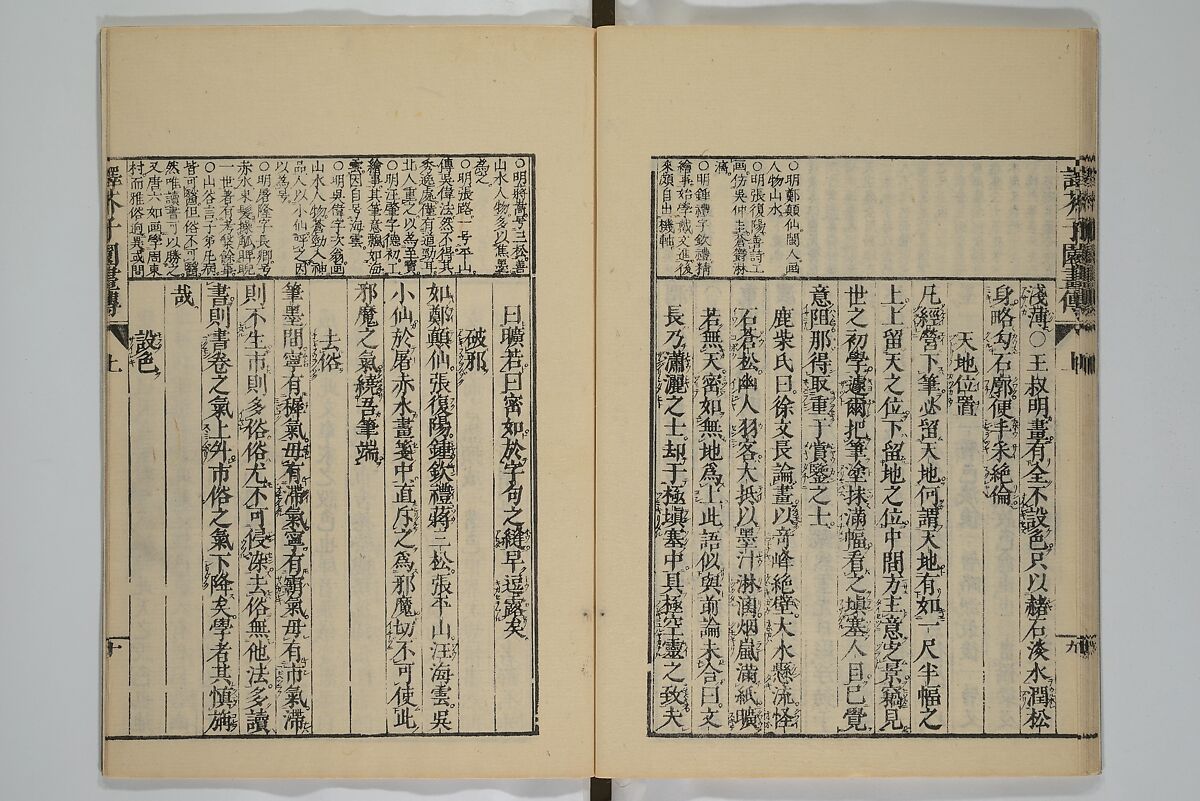 淺薄○王叔明畫有全不設色只以赭石淡水潤松
身略勾石廓便手采絶倫
天地位置
凡經營下筆必留天地何謂天地有如一尺半幅之
上上留天之位下留地之位中間方主意定景竊見
世之初學遽爾把筆塗抹滿幅看之塡塞人目已覺
意阻那得取重于賞鑒之士
鹿柴氏曰徐文長論畫以奇峰絶壁大水懸流怪
石蒼松幽人羽客大抵以墨汁淋漓烟嵐滿紙曠
若無天密如無地爲上此語似與前論未合曰文
長乃瀟灑之士却于極塡塞中具極空靈之致夫
○明鄭顛仙閩人画
人物山水
○明張復陽善詩工
画仿吳仲圭蒼鬱淋
漓
○明鍾禮字欽禮精
繪事始學戴文進後
來頗自出機軸
九
曰曠若曰密如於字句之縫早逗露矣
破邪
如鄭顛仙張復陽鍾欽禮蔣三松張平山汪海雲吳
小仙於屠赤水畫箋中直斥之爲邪魔切不可使此
邪魔之氣繞吾筆端
去俗
筆墨間寧有穉氣毋有滯氣寧有霸氣毋有市氣滯
則不生市則多俗俗尤不可侵染去俗無他法多讀
書則書卷之氣上升市俗之氣下降矣學者其愼旃
哉
設色
○明蔣嵩号三松善
山水人物多以焦墨
為之
○明張路一号平山
傳吳偉法然不得其
秀逸處僅有遒勁耳
北人重之以為至寶
○明汪肇字德初工
繪事其筆意飄如海
雲因自号海雲
○明吳偉字次翁画
山水人物蒼勁入神
品人以小仙呼之因
以為号
○明屠隆字長卿号
赤水
一世著有考槃餘事
○山谷言子弟凡病
皆可醫但俗不可醫
然唯讀書可以勝之
又唐六如画學周東
村而雅俗迥異或問
譯芥子園畫傳
上
十